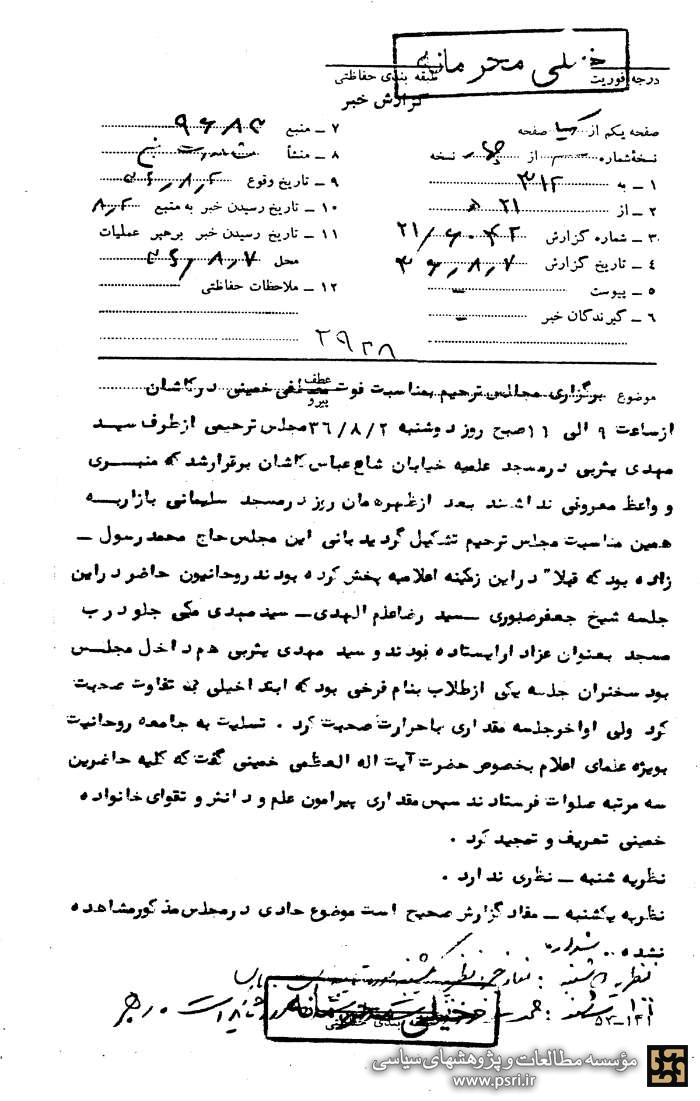 خیلی محرمانه
درجه فوریت طبقه بندی حفاظتی
گزارش خبر
صفحه یکم از یک صفحه
نسخه شماره از نسخه
۱ ــ به ۳۱۲
۲ ــ از ۲۱ ه
۳ ــ شماره گزارش ۲۱/۶۰۴۲
۴ ــ تاریخ گزارش ۳۶,۸,۷
۵ ــ پیوست ــ
۶ ــ گیرندگان خبر ــ
۷ ــ منبع ۹۶۸۳
۸ ــ منشأ
۹ ــ تاریخ وقوع ۳۶,۸,۲
۱۰ ــ تاریخ رسیدن خبر به منبع ۸,۲
۱۱ ــ تاریخ رسیدن خبر برهبر عملیات
محل ۳۶,۸,۷
۱۲ ــ ملاحظات حفاظتی
۲۹۲۸
موضوع برگزاری مجالس ترحیم بمناسبت فوت مصطفی خمینی در کاشان
عطف
پیرو
از ساعت ۹ الی ۱۱ صبح روز دوشنبه ۳۶/۸/۲ مجلس ترحیمی از طرف سید
مهدی یثربی در مسجد علمیه خیابان شاه عباس کاشان برقرار شد که منبری
و واعظ معروفی نداشتند بعد از ظهر همان روز در مسجد سلیمانی بازار به
همین مناسبت مجلس ترحیم تشکیل گردید بانی این مجلس حاج محمد رسول ــ
زاده بود که قبلا" در این زمینه اعلامیه پخش کرده بودند روحانیون حاضر در این
جلسه شیخ جعفر صبوری ــ سید رضا علم الهدی ــ سید مهدی مکی جلو درب
مسجد بعنوان عزادار ایستاده بودند و سید مهدی یثربی هم داخل مجلس
بود سخنران جلسه یکی از طلاب بنام فرخی بود که ابتدا خیلی بی تفاوت صحبت
کرد ولی اواخر جلسه مقداری با حرارت صحبت کرد . تسلیت به جامعه روحانیت
بویژه علمای اعلام بخصوص حضرت آیت اله العظمی خمینی گفت که کلیه حاضرین
سه مرتبه صلوات فرستادند سپس مقداری پیرامون علم و دانش و تقوای خانواده
خمینی تعریف و تمجید کرد .
نظریه شنبه ــ نظری ندارد .
نظریه یکشنبه ــ مفاد گزارش صحیح است موضوع حادی در مجلس مذکور مشاهده
نشده ..
نظریه دوشنبه :
خیلی محرمانه
طبقه بندی حفاظتی
۵۲-۱۴۱
مؤسسه مطالعات و پژوهشهای سیاسی
www.psri.ir